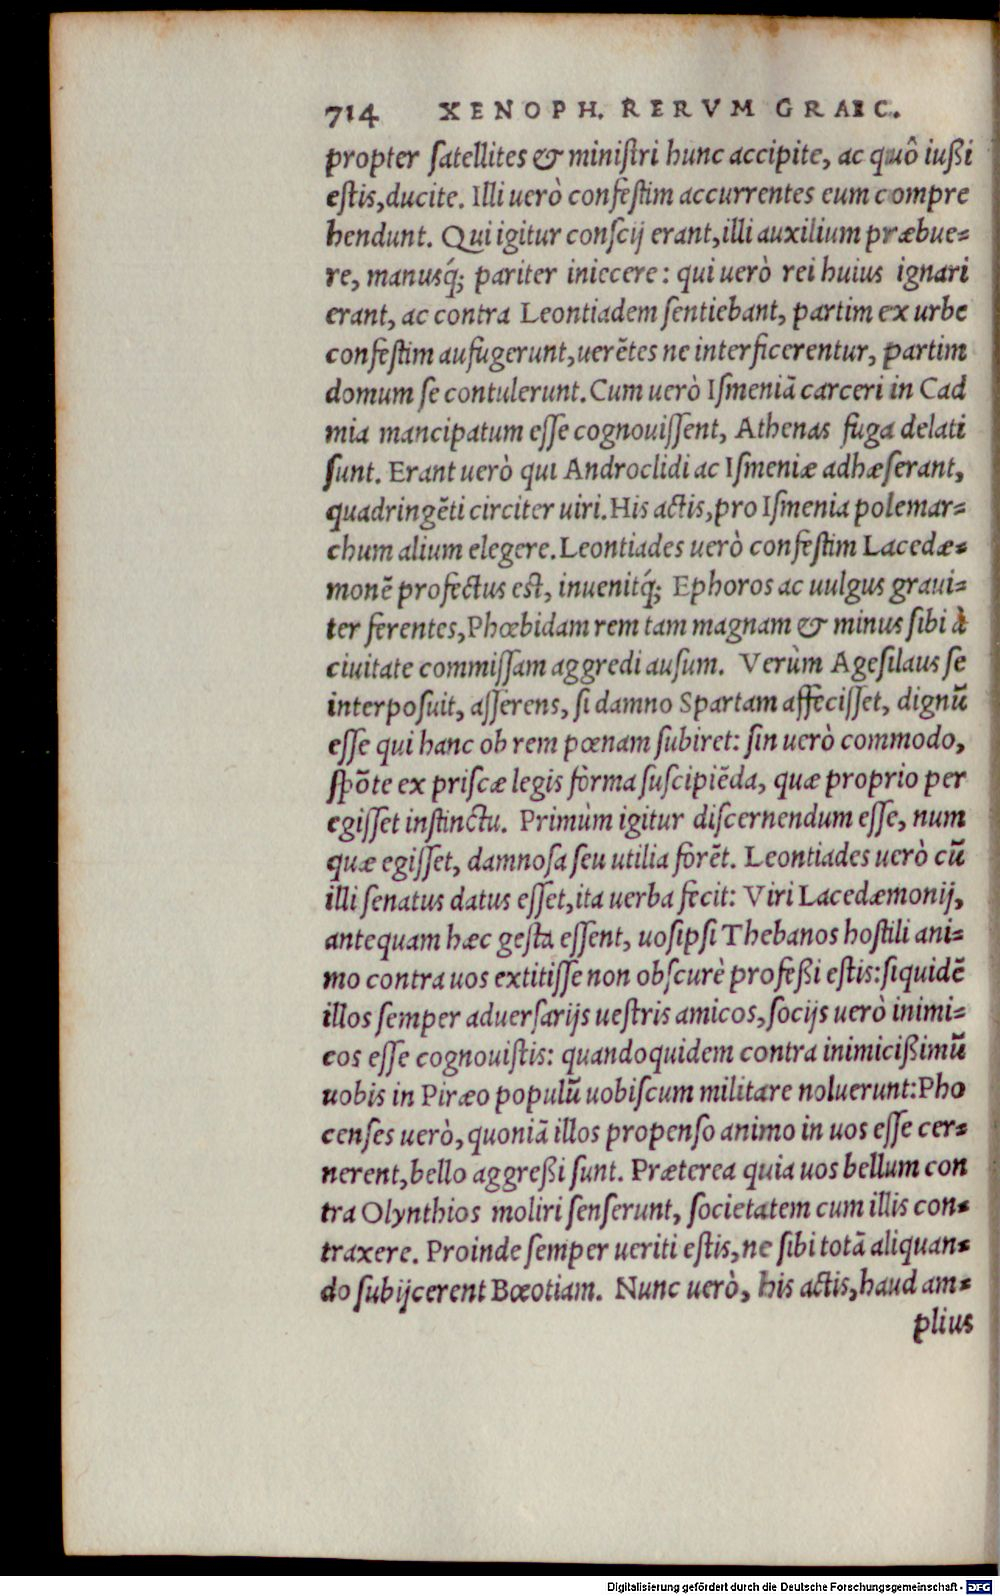 714 XENOPH. RERVM GRAEC.
propter satellites & ministri hunc accipite, ac quô iußi
estis, ducite. Illi uerò confestim accurrentes eum compre
hendunt. Qui igitur conscij erant, illi auxilium præbue=
re, manusq́; pariter iniecere: qui uerò rei huius ignari
erant, ac contra Leontiadem sentiebant, partim ex urbe
confestim aufugerunt, uerẽtes ne interficerentur, partim
domum se contulerunt. Cum uerò Ismeniã carceri in Cad
mia mancipatum esse cognouissent, Athenas fuga delati
sunt. Erant uerò qui Androclidi ac Ismeniæ adhæserant,
quadringẽti circiter uiri. His actis, pro Ismenia polemar=
chum alium elegere. Leontiades uerò confestim Lacedæ=
monẽ profectus est, inuenitq́; Ephoros ac uulgus graui=
ter ferentes, Phœbidam rem tam magnam & minus sibi à
ciuitate commissam aggredi ausum. Verùm Agesilaus se
interposuit, asserens, si damno Spartam affecisset, dignũ
esse qui hanc ob rem pœnam subiret: sin uerò commodo,
spõte ex priscæ legis forma suscipiẽda, quæ proprio per
egisset instinctu. Primùm igitur discernendum esse, num
quæ egisset, damnosa seu utilia forẽt. Leontiades uerò cũ
illi senatus datus esset, ita uerba fecit: Viri Lacedæmonij,
antequam hæc gesta essent, uosipsi Thebanos hostili ani=
mo contra uos extitisse non obscurè profeßi estis: siquidẽ
illos semper aduersarijs uestris amicos, socijs uerò inimi=
cos esse cognouistis: quandoquidem contra inimicißimũ
uobis in Piræo populũ uobiscum militare noluerunt: Pho
censes uerò, quoniã illos propenso animo in uos esse cer=
nerent, bello aggreßi sunt. Præterea quia uos bellum con
tra Olynthios moliri senserunt, societatem cum illis con=
traxere. Proinde semper ueriti estis, ne sibi totã aliquan=
do subijcerent Bœotiam. Nunc uerò, his actis, haud am=
plius
Digitalisierung gefördert durch die Deutsche Forschungsgemeinschaft - DFG